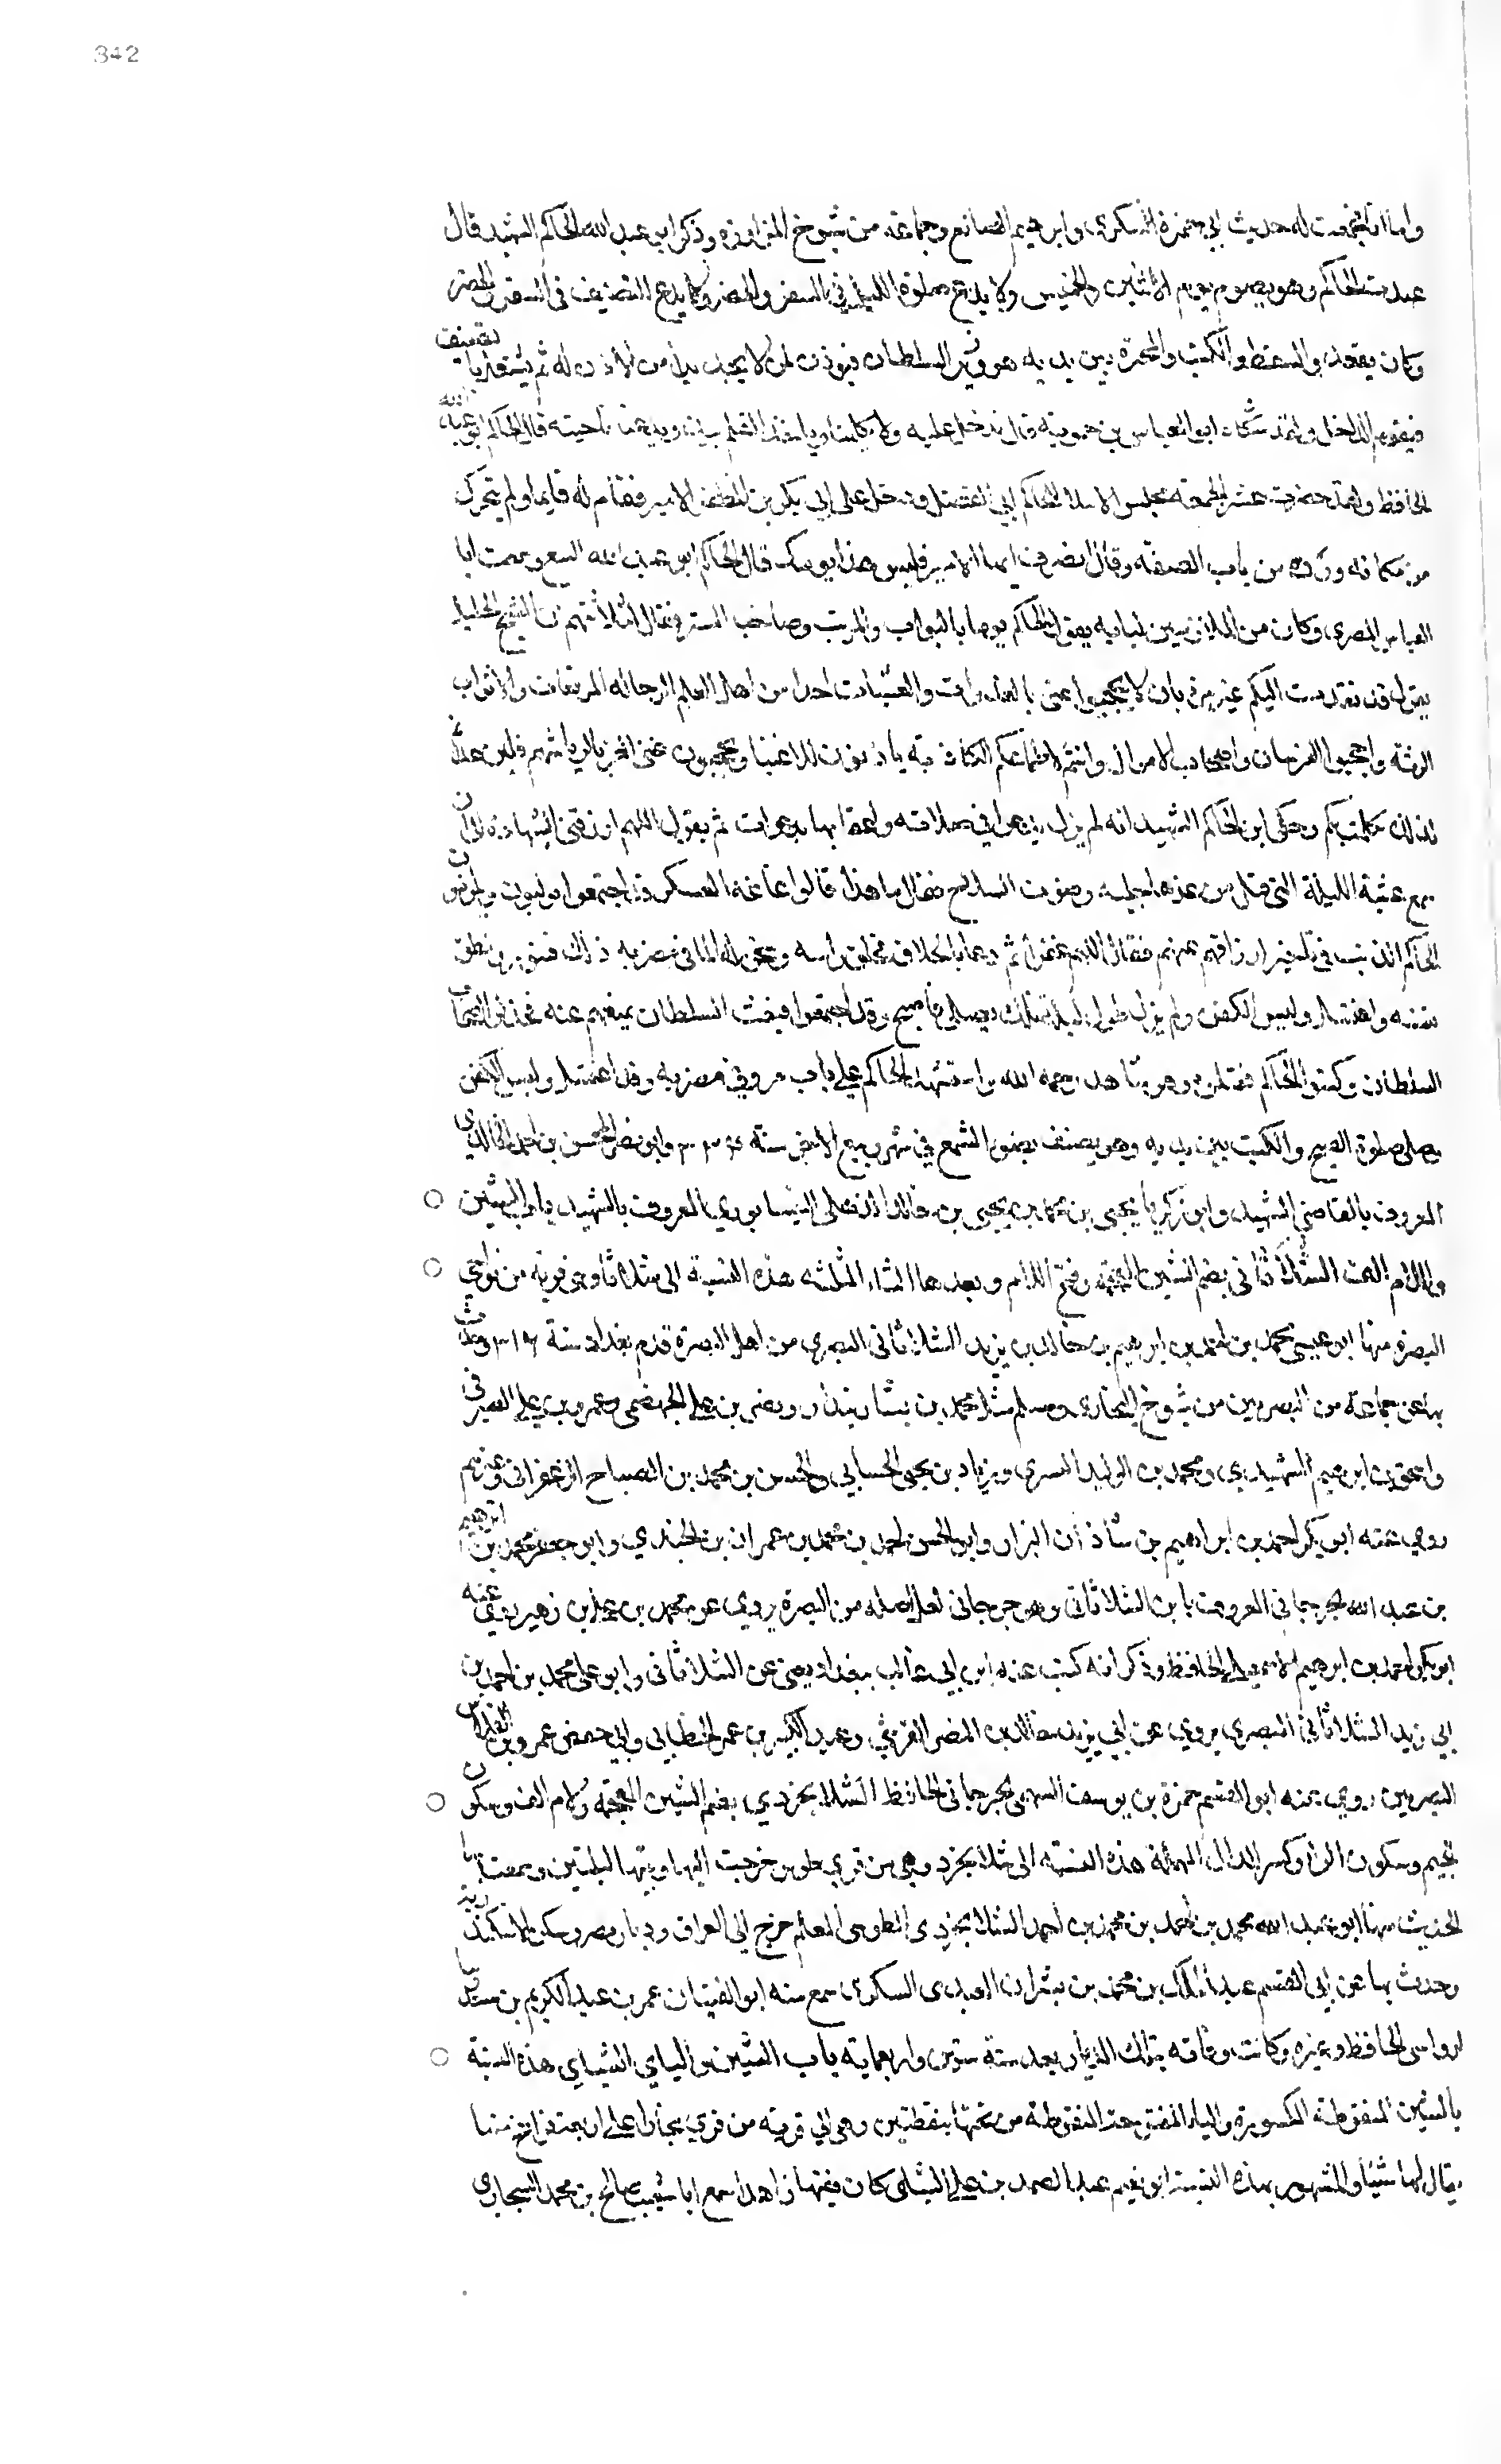 342
واما انا فجمعت له حديث ابي حمزة السكري وابرهيم الصايغ وجماعة من شيوخ المراوزه وذكر ابو عبد الله الحاكم الشهيد قال
عهدت الحاكم وهو يصوم يوم الاثنين والخميس ولا يدع صلوة الليل في السفر والحضر ولا يدع التصنيف في السفر والحضر
وكان يقعد والسفط والكتب والمحبرة بين يديه وهو وزير السلطان فيوذن لمن لا يجد بدا من الاذن له ثم يشتغل بالتصنيف
فيقوم الداخل ولقد شكاه ابو العباس بن حمويه قال ندخل عليه ولا يكلمنا وياخذ القلم بيده ويدعنا ناحيته قال الحاكم ابو عبد الله
الحافظ ولقد حضرت عشية الجمعة مجلس الاملا للحاكم ابي الفضل ودخل علي ابي بكر بن المظفر الامير فقام له قايما ولم يتحرك
من مكانه ورده من باب الصفه وقال انصرف ايها الامير فليس هذا يومك قال الحاكم ابو عبد الله السمع وسمعت ابا
العباس المصري وكان من الملازمين لبابه يقول الحاكم يوما بالبواب والمرتب وصاحب الستر فقال لثلاثتهم ان الشيخ الجليل
يقول قد تقدمت اليكم غير مرة بان لا تحجبوا عني بالغدوات والعشيات احدا من اهل العلم الرحالة المرقعات والاثواب
الرثة واحجبوا الفرسان واصحاب الاموال وانتم لاطماعكم الكاذبة ياذنون للاغنيا ويحجبون عني الغربا لرثاثتهم فلين عدتم
لذلك نكلت بكم وحكى ابن الحاكم الشهيد انه لم يزل يدعوا في صلاته واعقابها بدعوات ثم يقول اللهم ارزقني الشهادة الى ان
سمع عشية الليلة التي قتل من غدها جلبه وصوت السلاح فقال ما هذا قالوا غاغة العسكر قد اجتمعوا يولبون ويلزمون
الحاكم الذنب في تاخير ارزاقهم عنهم فقال اللهم غفرا ثم دعا بالحلاق فحلق راسه وسخن له الما في مضربه ذلك وتنور ونظف
نفسه واغتسل ولبس الكفن ولم يزل طول ليلته تلك يصلي فاصبح وقد اجتمعوا فبعث السلطان يمنعهم عنه فخذل اصحاب
السلطان وكبسوا الحاكم فقتلوه وهو ساجد رحمه الله واستشهد الحاكم علي باب مرو في مضربه وقد اغتسل ولبس الكفن
يصلى صلوة الصبح والكتب بين يديه وهو يصنف بضوء الشمع في شهر ربيع الاخر سنة ٣٣٤ وابو نصر المحسن بن احمد الخالدي
المعروف بالقاضي الشهيد وابو زكريا يحيى بن محمد بن يحيى بن خالد الذهلي النيسابوري المعروف بالشهيد باب الشين
واللام الف الشلاثاني بضم الشين المعجمة وفتح اللام وبعدها الثاء المثلثه هذه النسبة الى شلاثا وهي قرية من نواحي
البصرة منها ابو عيسى محمد بن احمد بن ابرهيم بن خالد بن يزيد الشلاثاني البصري من اهل البصرة قدم بغداد سنة ٣١٩ وحدث
بها عن جماعة من البصريين من شيوخ البخاري ومسلم مثل محمد بن بشار بندار ونصر بن علي الجهضمي وعمرو بن علي الصيرفي
واسحق بن ابرهيم الشهيدي ومحمد بن الوليد البسري وزياد بن يحيى الحساني والحسن بن محمد بن الصباح الزعفراني وغيرهم
روى عنه ابو بكر احمد بن ابراهيم بن شاذان البزاز وابو الحسن احمد بن محمد بن عمران بن الجندي وابو جعفر محمد بن ابرهيم
بن عبد الله الجرجاني المعروف بابن الشلاثاني وهو جرجاني لعل اصله من البصرة يروى عن محمد بن عبد بن زهير روى عنه
ابو بكر احمد بن ابرهيم الاسماعيلي الحافظ وذكر انه كتب عنه ابن ابي غالب ببغداد يعني عن الشلاثاني وابو علي محمد بن احمد بن
ابي زيد الشلاثاني البصري يروي عن ابي يزيد خالد بن النضر القرشي وعبد الكبير بن عمر الخطابي وابي حفص عمرو بن الفلاس
البصريين روى عنه ابو القسم حمزة بن يوسف السهمي الجرجاني الحافظ الشلانجردي بضم الشين المعجمة ولام الف وسكون
الجيم وسكون الرا وكسر الدال المهملة هذه النسبة الى شلانجرد وهي من قري طوس خرجت اليها وبت بها ليلتين وسمعت بها
الحديث منها ابو عبد الله محمد بن احمد بن محمد بن احمد الشلانجردي الطوسي المعلم خرج الى العراق وديار مصر وسكن الاسكندرية
وحدث بها عن ابي القسم عبد الملك بن محمد بن بشران العبدي السكري سمع منه ابو الفتيان عمر بن عبد الكريم بن سعدويه
الرواسي الحافظ وغيره وكانت وفاته بتلك الديار بعد سنة ستين واربعمايه باب الشين والياي الشياي هذه النسبة
بالشين المنقوطة المكسورة والياء المفتوحة المنقوطة من تحتها بنقطتين وهي الي قرية من قري بخارا علي اربعة فراسخ منها
يقال لها شيا والمشهور بهذه النسبة ابو نعيم عبد الصمد بن علي الشيايى كان فقيها زاهدا سمع ابا شعيب صالح بن محمد السجاري